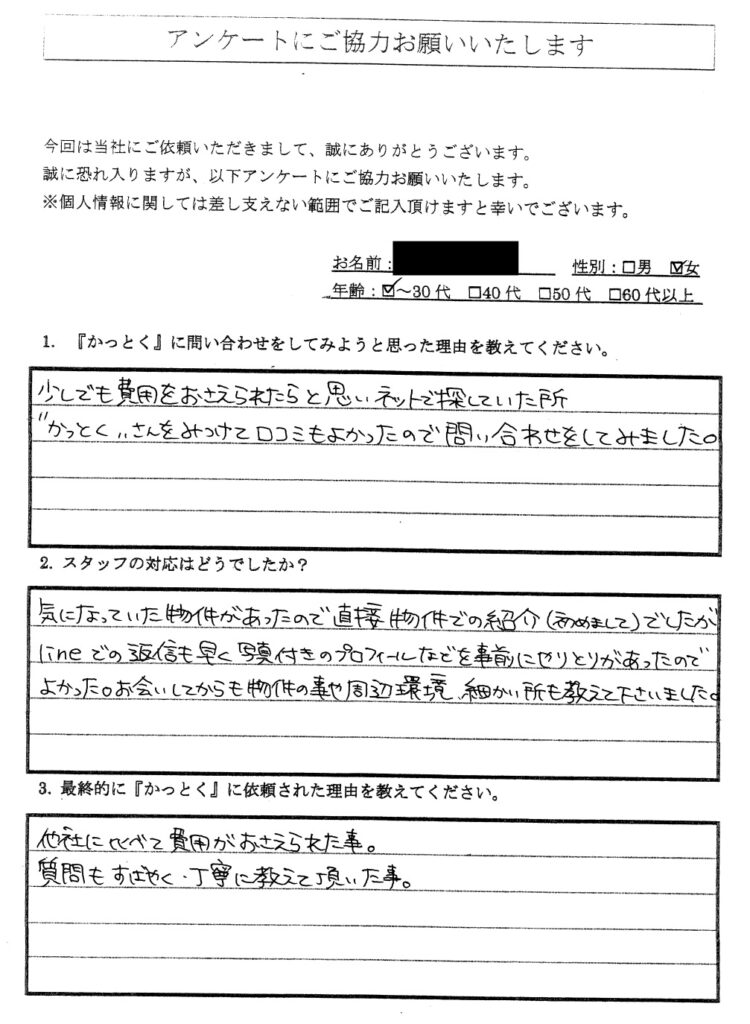 アンケートにご協力お願いいたします
今回は当社にご依頼いただきまして、誠にありがとうございます。
誠に恐れ入りますが、以下アンケートにご協力お願いいたします。
※個人情報に関しては差し支えない範囲でご記入頂けますと幸いでございます。
お名前: 性別:□男 ☑女
年齢:☑~30代 □40代 □50代 □60代以上
1. 『かっとく』に問い合わせをしてみようと思った理由を教えてください。
少しでも費用をおさえられたらと思いネットで探していた所
"かっとく"さんをみつけて口コミもよかったので問い合わせをしてみました。
2. スタッフの対応はどうでしたか?
気になっていた物件があったので直接物件での紹介(初めまして)でしたが
lineでの返信も早く写真付きのプロフィールなどを事前にやりとりがあったので
よかった。お会いしてからも物件の事や周辺環境、細かい所も教えて下さいました。
3. 最終的に『かっとく』に依頼された理由を教えてください。
他社に比べて費用がおさえられた事。
質問もすばやく・丁寧に教えて頂いた事。